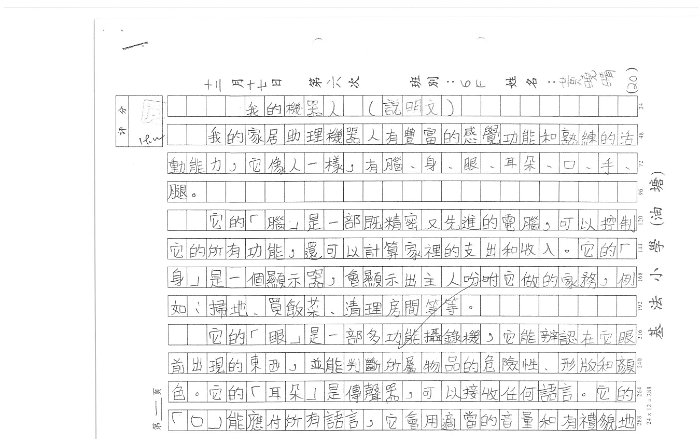 十二月十七日 第六次 班別：6F 姓名：
(20)
評分
我的機器人（說明文）
我的家居助理機器人有豐富的感覺功能和熟練的活
動能力，它像人一樣，有腦、身、眼、耳朵、口、手、
腿。
它的「腦」是一部既精密又先進的電腦，可以控制
它的所有功能，還可以計算家裡的支出和收入。它的「
身」是一個顯示器，會顯示出主人吩咐它做的家務，例
如：掃地、買飯菜、清理房間等等。
它的「眼」是一部多功能攝錄機，它能辨認在它眼
前出現的東西，並能判斷所屬物品的危險性、形狀和顏
色。它的「耳朵」是傳聲器，可以接收任何語言。它的
「口」能應付所有語言，它會用適當的音量和有禮貌地
第一頁
基法小學(油塘)